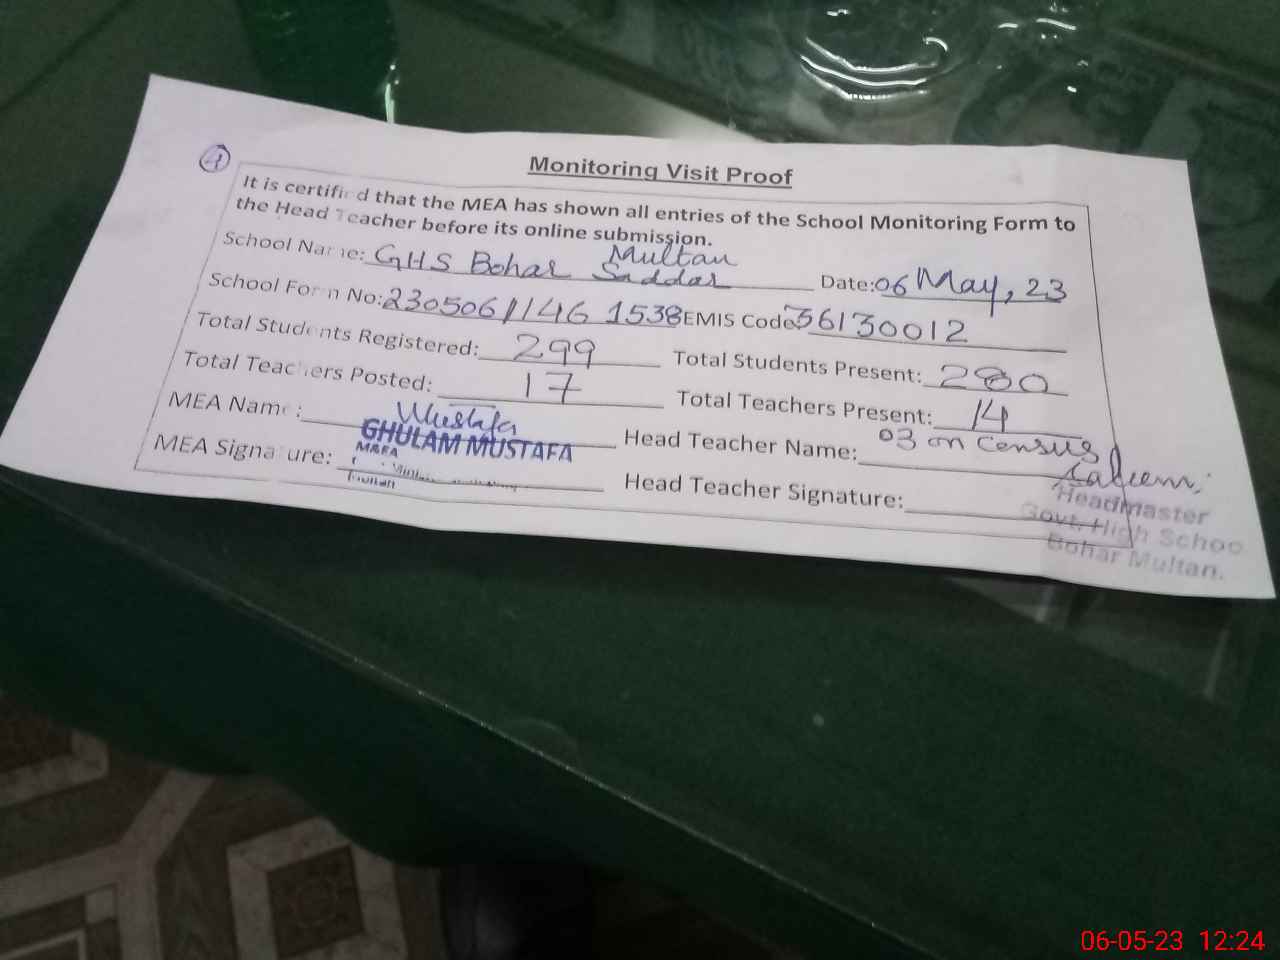 Monitoring Visit Proof
It is certified that the MEA has shown all entries of the School Monitoring Form to
the Head Teacher before its online submission.
School Name: GHS Bohar Multan Saddar Date: 06 May, 23
School Form No: 2305061146 1538 EMIS Code: 36130012
Total Students Registered: 299 Total Students Present: 280
Total Teachers Posted: 17 Total Teachers Present: 14
03 on Census
MEA Name: Mustafa Head Teacher Name:
GHULAM MUSTAFA
MEA Signature: Head Teacher Signature:
Headmaster
Govt. High Schoo
Bohar Multan.
06-05-23 12:24